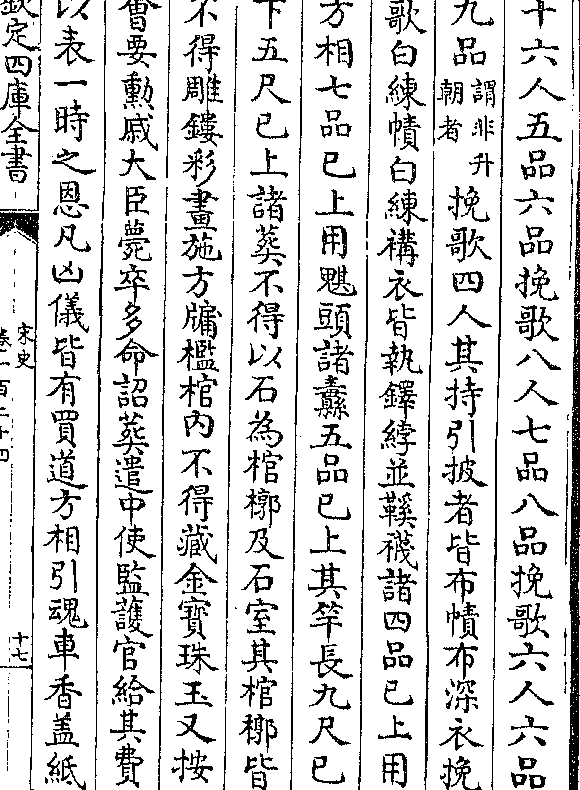 十六人五品六品挽歌八人七品八品挽歌六人六品
九品謂非升朝者挽歌四人其持引披者皆布幘布深衣挽
歌白練幘白練褠衣皆執鐸綍並鞵襪諸四品已上用
方相七品已上用魌頭諸纛五品已上其竿長九尺已
下五尺已上諸葬不得以石為棺槨及石室其棺槨皆
不得雕鏤彩畫施方牖檻棺內不得藏金寶珠玉又按
會要勳戚大臣薨卒多命詔葬遣中使監護官給其費
以表一時之恩凡凶儀皆有買道方相引魂車香蓋紙
欽定四庫全書
宋史
卷一百二十四
十七